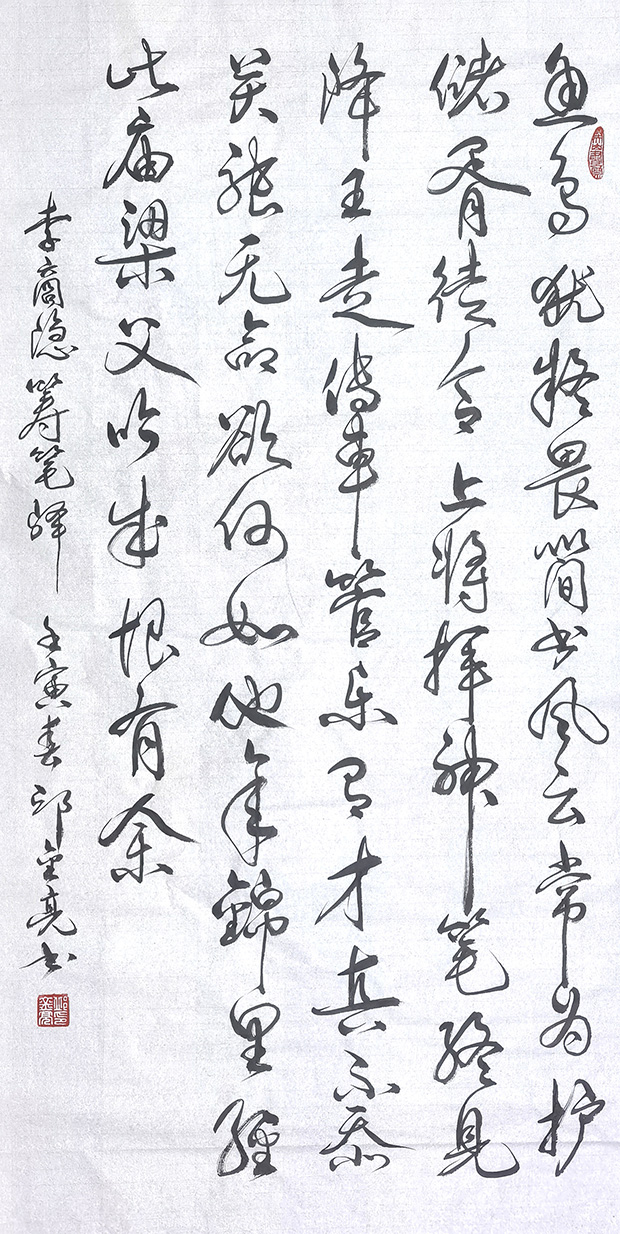 鱼鸟犹疑畏简书风云常为护
储胥徒令上将挥神笔终见
降王走传車管乐有才真不忝
关張无命欲何如他年錦里經
此庙梁父吟成恨有余
李商隐筹笔驿 壬寅春邱金亮书